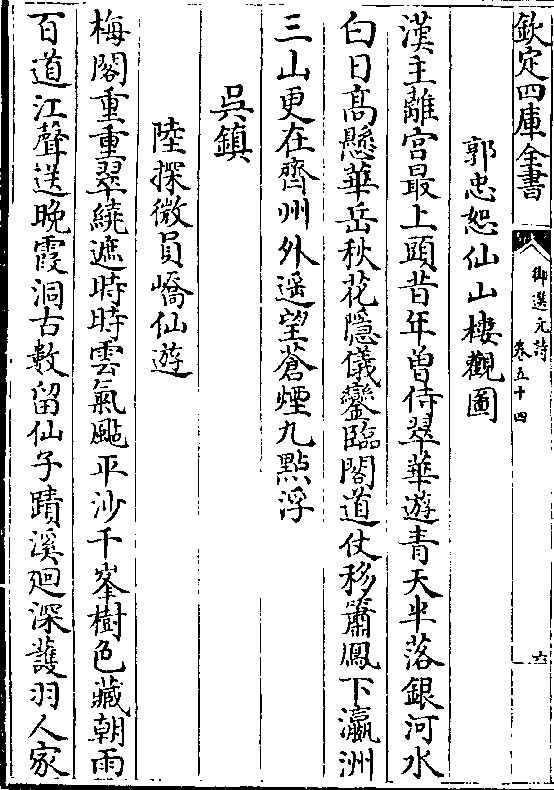 欽定四庫全書
御選元詩
卷五十四
六
郭忠恕仙山樓觀圖
漢主離宮最上頭昔年曽侍翠華遊青天半落銀河水
白日髙懸華岳秋花隱儀鑾臨閣道仗移簫鳳下瀛洲
三山更在齊州外遥望蒼煙九點浮
吳鎮
陸探微員嶠仙遊
梅閣重重翠繞遮時時雲氣颭平沙千峯樹色藏朝雨
百道江聲送晚霞洞古數留仙子蹟溪廻深䕶羽人家